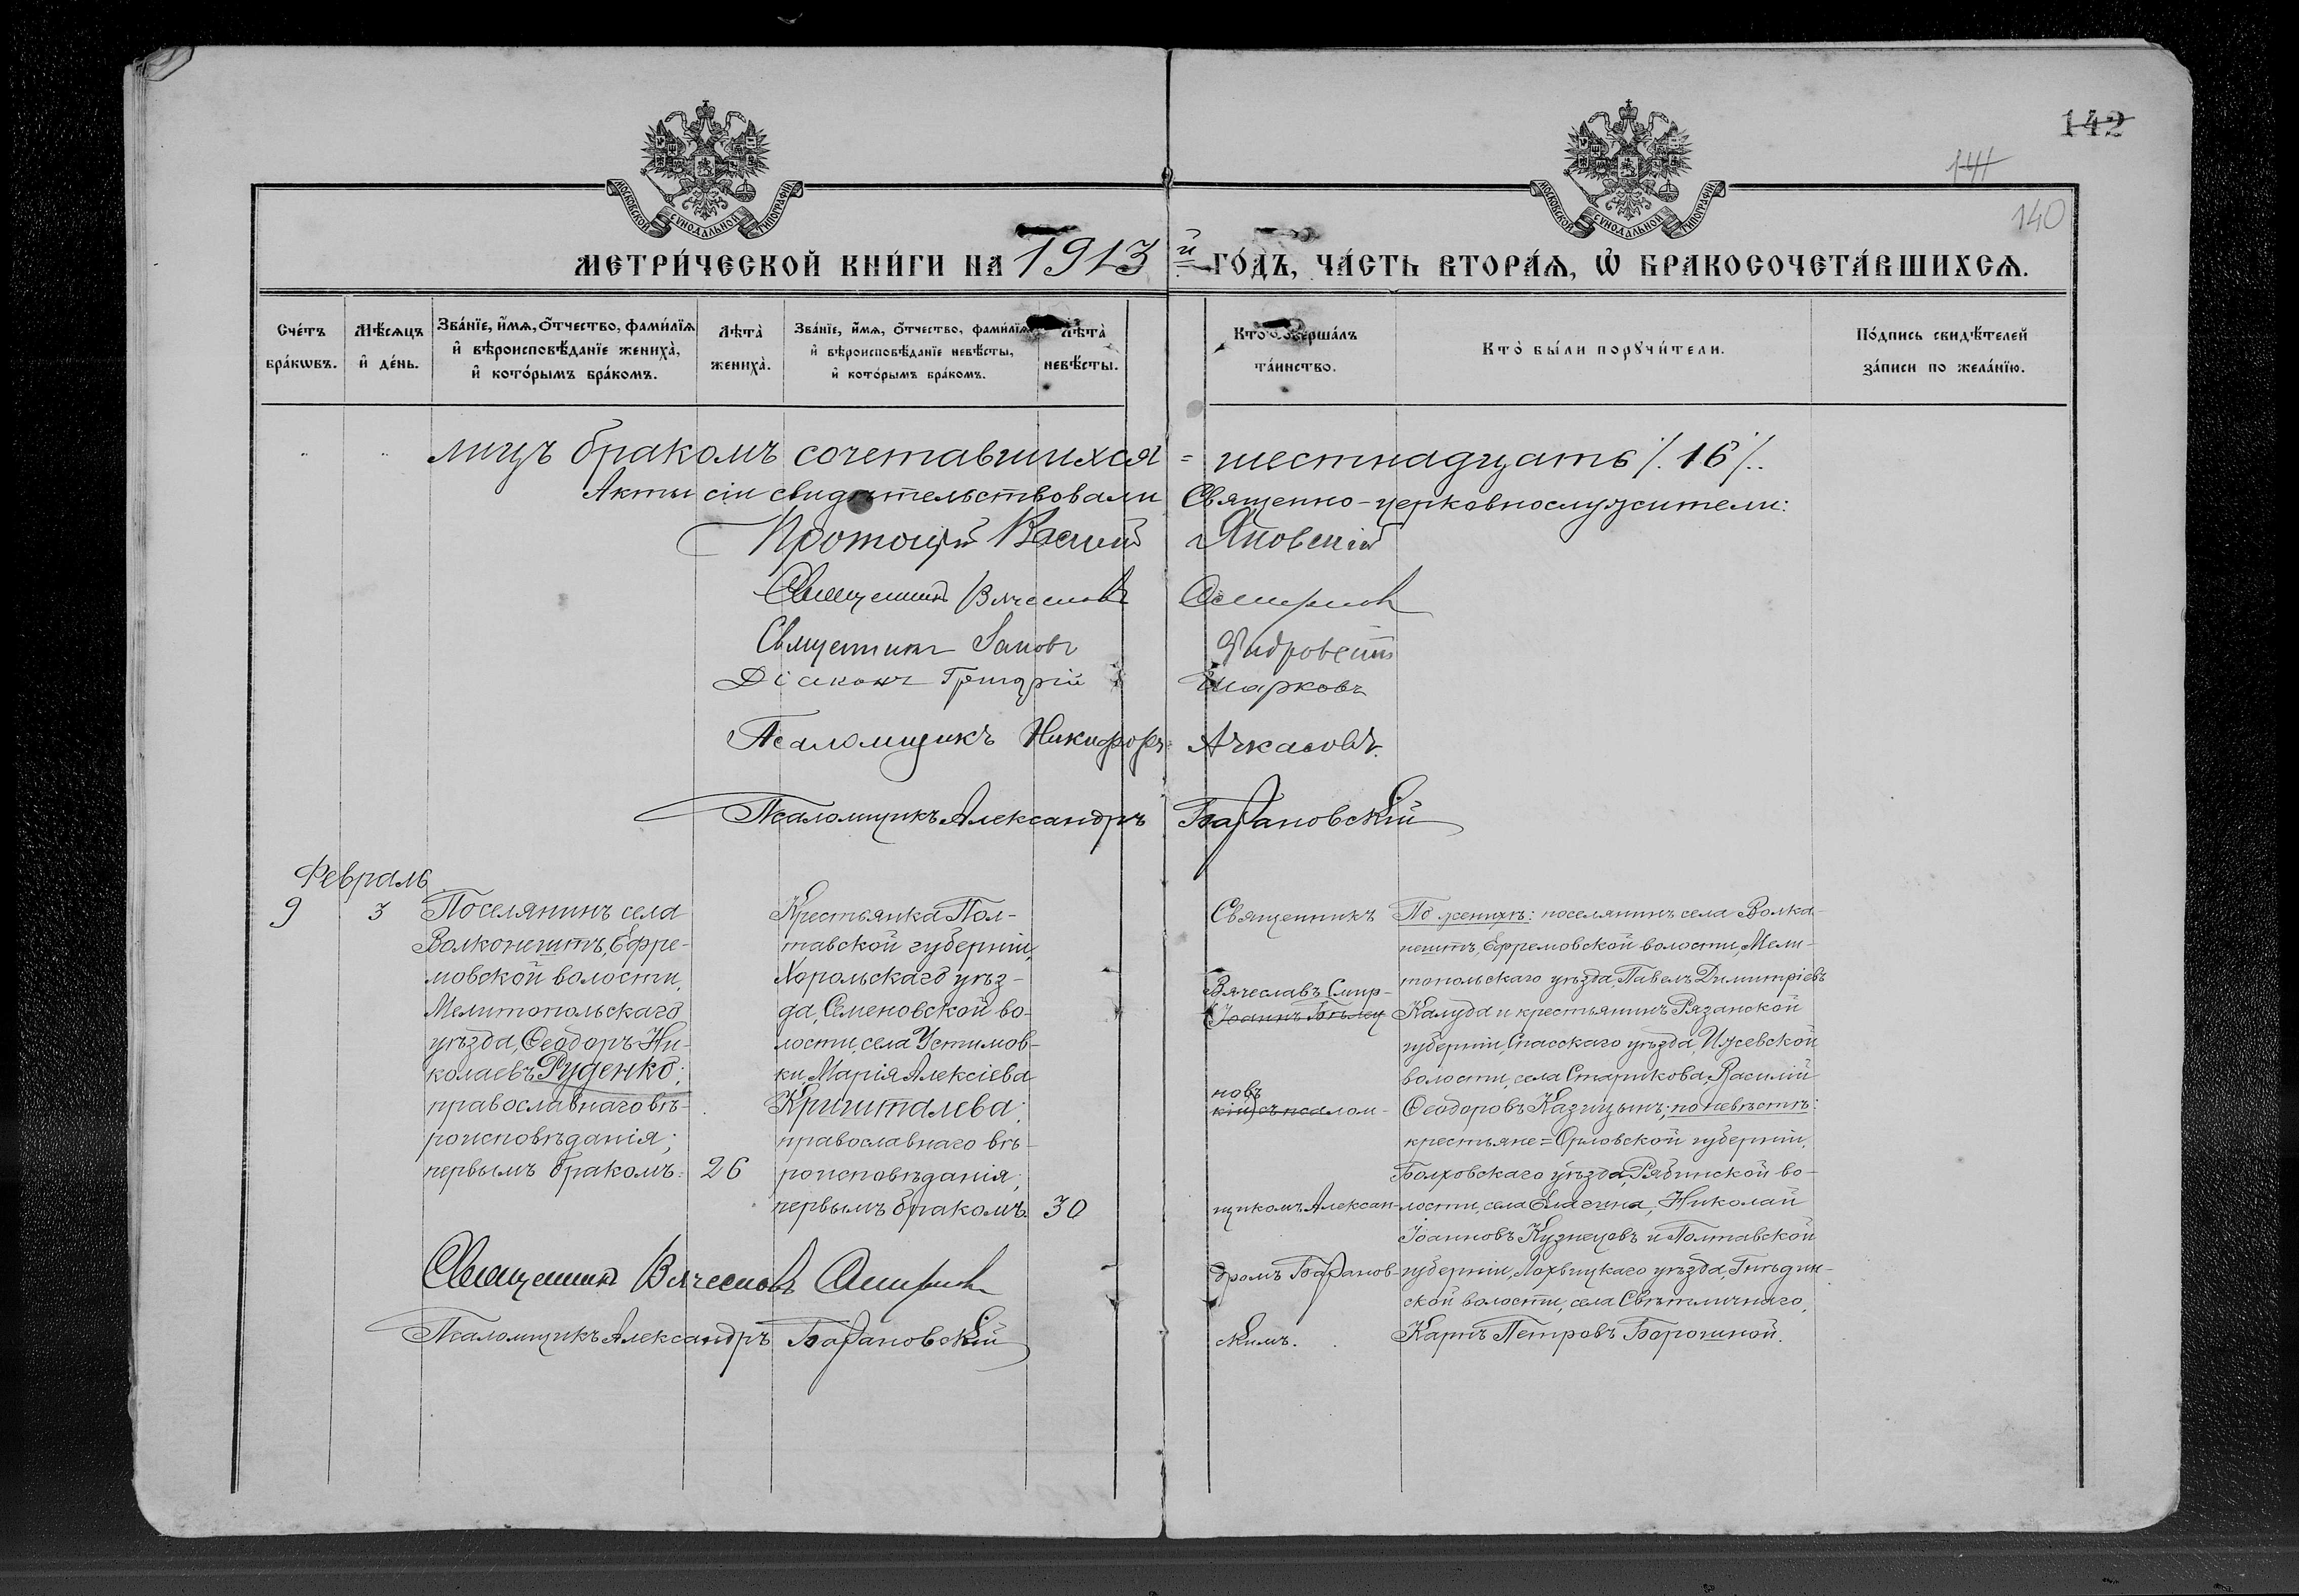 142
141
140
МОСКОВСКОЙ СУНОДАЛЬНОЙ ТИПОГРАФІИ
МОСКОВСКОЙ СУНОДАЛЬНОЙ ТИПОГРАФІИ
МЕТРИ́ЧЕСКОЙ КНИ́ГИ НА 1913 й ГО́ДЪ, ЧА́СТЬ ВТОРА́Ѧ, Ѡ҆ БРАКОСОЧЕТА́ВШИХСѦ.
Сче́тъ бра́кѡвъ.
Мѣ́сяцъ и҆ де́нь.
Зва́нїе, и҆́мѧ, ѻ҆́тчество, фами́лїѧ и҆ вѣроисповѣ́данїе жениха̀, и҆ кото́рымъ бра́комъ.
Лѣта̀ жениха̀.
Зва́нїе, и҆́мѧ, ѻ҆́тчество, фами́лїѧ и҆ вѣроисповѣ́данїе невѣ́сты, и҆ кото́рымъ бра́комъ.
Лѣта̀ невѣ́сты.
Кто̀ соверша́лъ та́инство.
Кто̀ бы́ли порꙋчи́тели.
По́дпись свидѣ́телей за́писи по жела́нїю.
лицъ бракомъ сочетавшихся = шестнадцать /. 16 /.
Акты сіи свидѣтельствовали Священно-церковнослужители:
Протоіерей Василій Яновскій
Священникъ Вячеславъ Смирновъ
Священникъ
Діаконъ Григорій Шарковъ
Псаломщикъ Никифоръ Ачкасовъ.
Псаломщикъ Александръ Барановскій
Февраль
9 3
Поселянинъ села
Волконештъ, Ефре-
мовской волости,
Мелитопольскаго
уѣзда, Ѳеодоръ Ни-
колаевъ Руденко;
православнаго вѣ-
роисповѣданія;
первымъ бракомъ. 26
Крестьянка Пол-
тавской губерніи,
Хорольскаго уѣз-
да, Семеновской во-
лости, села Устимов-
ки, Марія Алексіева
Кришталева;
православнаго вѣ-
роисповѣданія;
первымъ бракомъ. 30
Священникъ Вячеславъ Смирновъ
Псаломщикъ Александръ Барановскій
Священникъ
Вячеславъ Смир-
(Іоаннъ Бѣлец
новъ
кій) съ псалом-
щикомъ Алексан-
дромъ Баранов-
скимъ.
По женихѣ: поселянинъ села Волка-
нештъ, Ефремовской волости, Мели-
топольскаго уѣзда, Павелъ Димитріевъ
Калуда и крестьянинъ Рязанской
губерніи, Спасскаго уѣзда, Ижевской
волости, села Старикова, Василій
Ѳеодоровъ Казицынъ; по невѣстѣ:
крестьяне = Орловской губерніи,
Болховскаго уѣзда, Рябинской во-
лости, села Елагина, Николай
Іоанновъ Кузнецовъ и Полтавской
губерніи, Лохвицкаго уѣзда, Гнѣдин-
ской волости, села Свѣтличнаго,
Карпъ Петровъ Борошной.